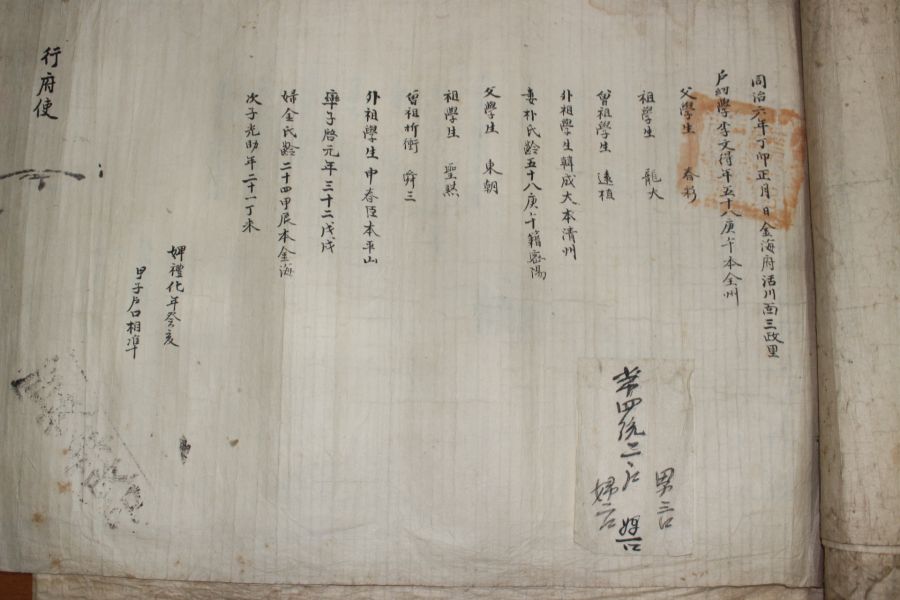 同治六年丁卯正月 日金海府活川面三政里
戶幼學李文得年五十八庚午本全州
父學生 春彩
祖學生 龍大
曾祖學生 遠植
外祖學生韓成大本淸州
妻朴氏齡五十八庚午籍密陽
父學生 東朝
祖學生 聖
曾祖折衝 舜三
外祖學生申春臣本平山
率子啓元年三十二戊戌
婦金氏齡二十四甲辰本金海
次子光助年二十一丁未
婢禮化年癸亥
甲子戶口相準
行府使
第四統二戶
男三口
婦二口
婢一口